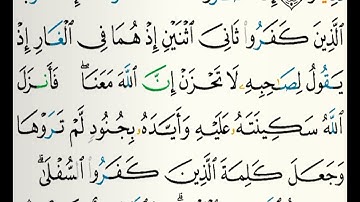 ٱلَّذِينَ كَفَرُواْ ثَانِىَ ٱثْنَيْنِ إِذْ هُمَا فِى ٱلْغَارِ إِذْ
يَقُولُ لِصَٰحِبِهِۦ لَا تَحْزَنْ إِنَّ ٱللَّهَ مَعَنَا ۖ فَأَنزَلَ
ٱللَّهُ سَكِينَتَهُۥ عَلَيْهِ وَأَيَّدَهُۥ بِجُنُودٍ لَّمْ تَرَوْهَا
وَجَعَلَ كَلِمَةَ ٱلَّذِينَ كَفَرُواْ ٱلسُّفْلَىٰ ۗ